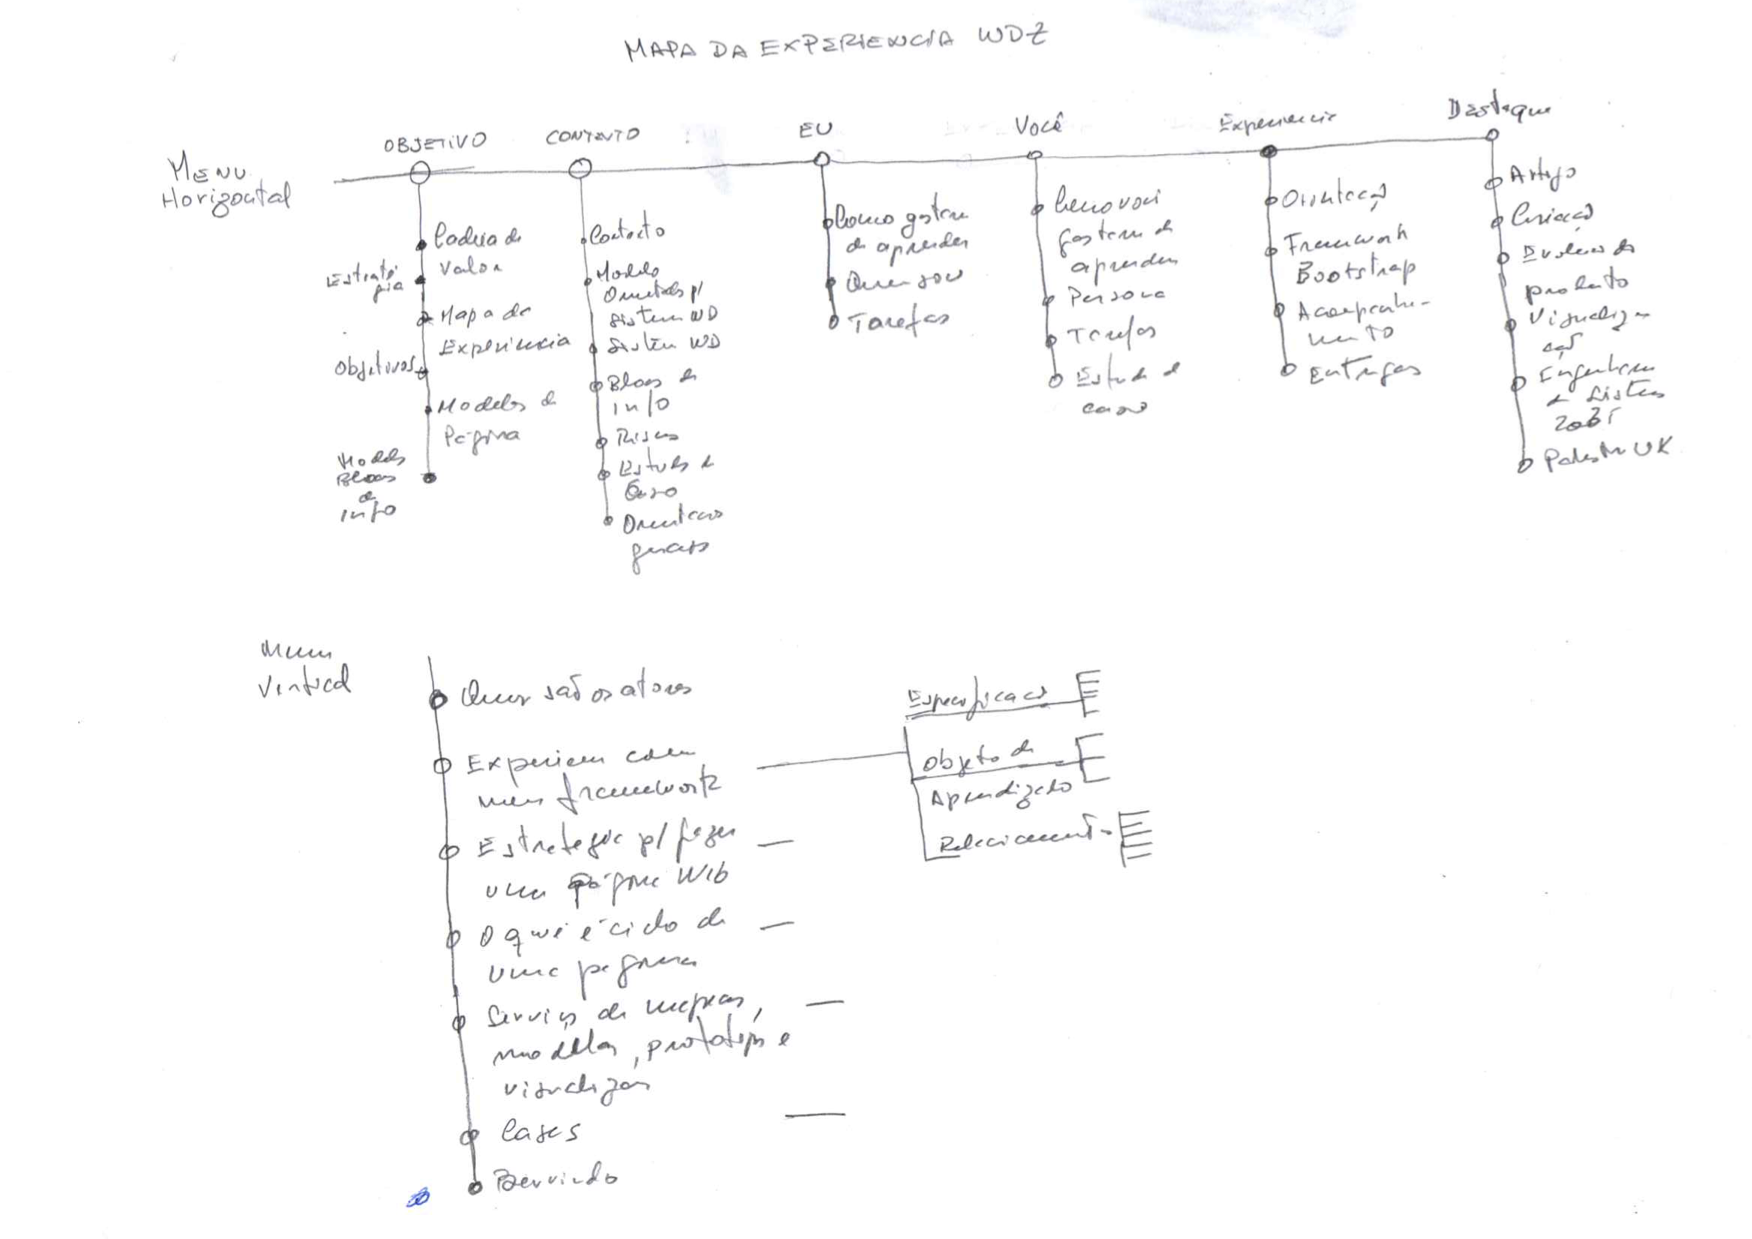 MAPA DA EXPERIENCIA WDZ
MENU
Horizontal
OBJETIVO
Cadeia de
Valor
Estraté
gia
Mapa da
Experiencia
Objetivos
Modelos de
Página
Modelos
Blocos
de
Info
CONTEXTO
Contexto
Modelo
p/
Sistema WD
Sistema WD
Blocos de
Info
Riscos
Estudo de
Caso
gerais
EU
Como gosten
de aprender
Quem sou
Tarefas
Você
gostem de
aprender
Persona
Tarefas
Estudo de
caso
Experiencia
Orientação
Framework
Bootstrap
Acompanha-
mento
Entregas
Destaque
Artigo
Criação
produto
Visualiza
ção
Engenharia
de Sistem
Palestra UK
Menu
Vertical
Quem são os atores
Experiencia com
meu framework
Estrategia p/ fazer
uma página Web
O que é ciclo de
uma pagina
Serviço de mapas,
modelos, prototipos e
visualizações
Cases
Benvindo
Especificacao
Objeto de
Aprendizado
Relacionament-